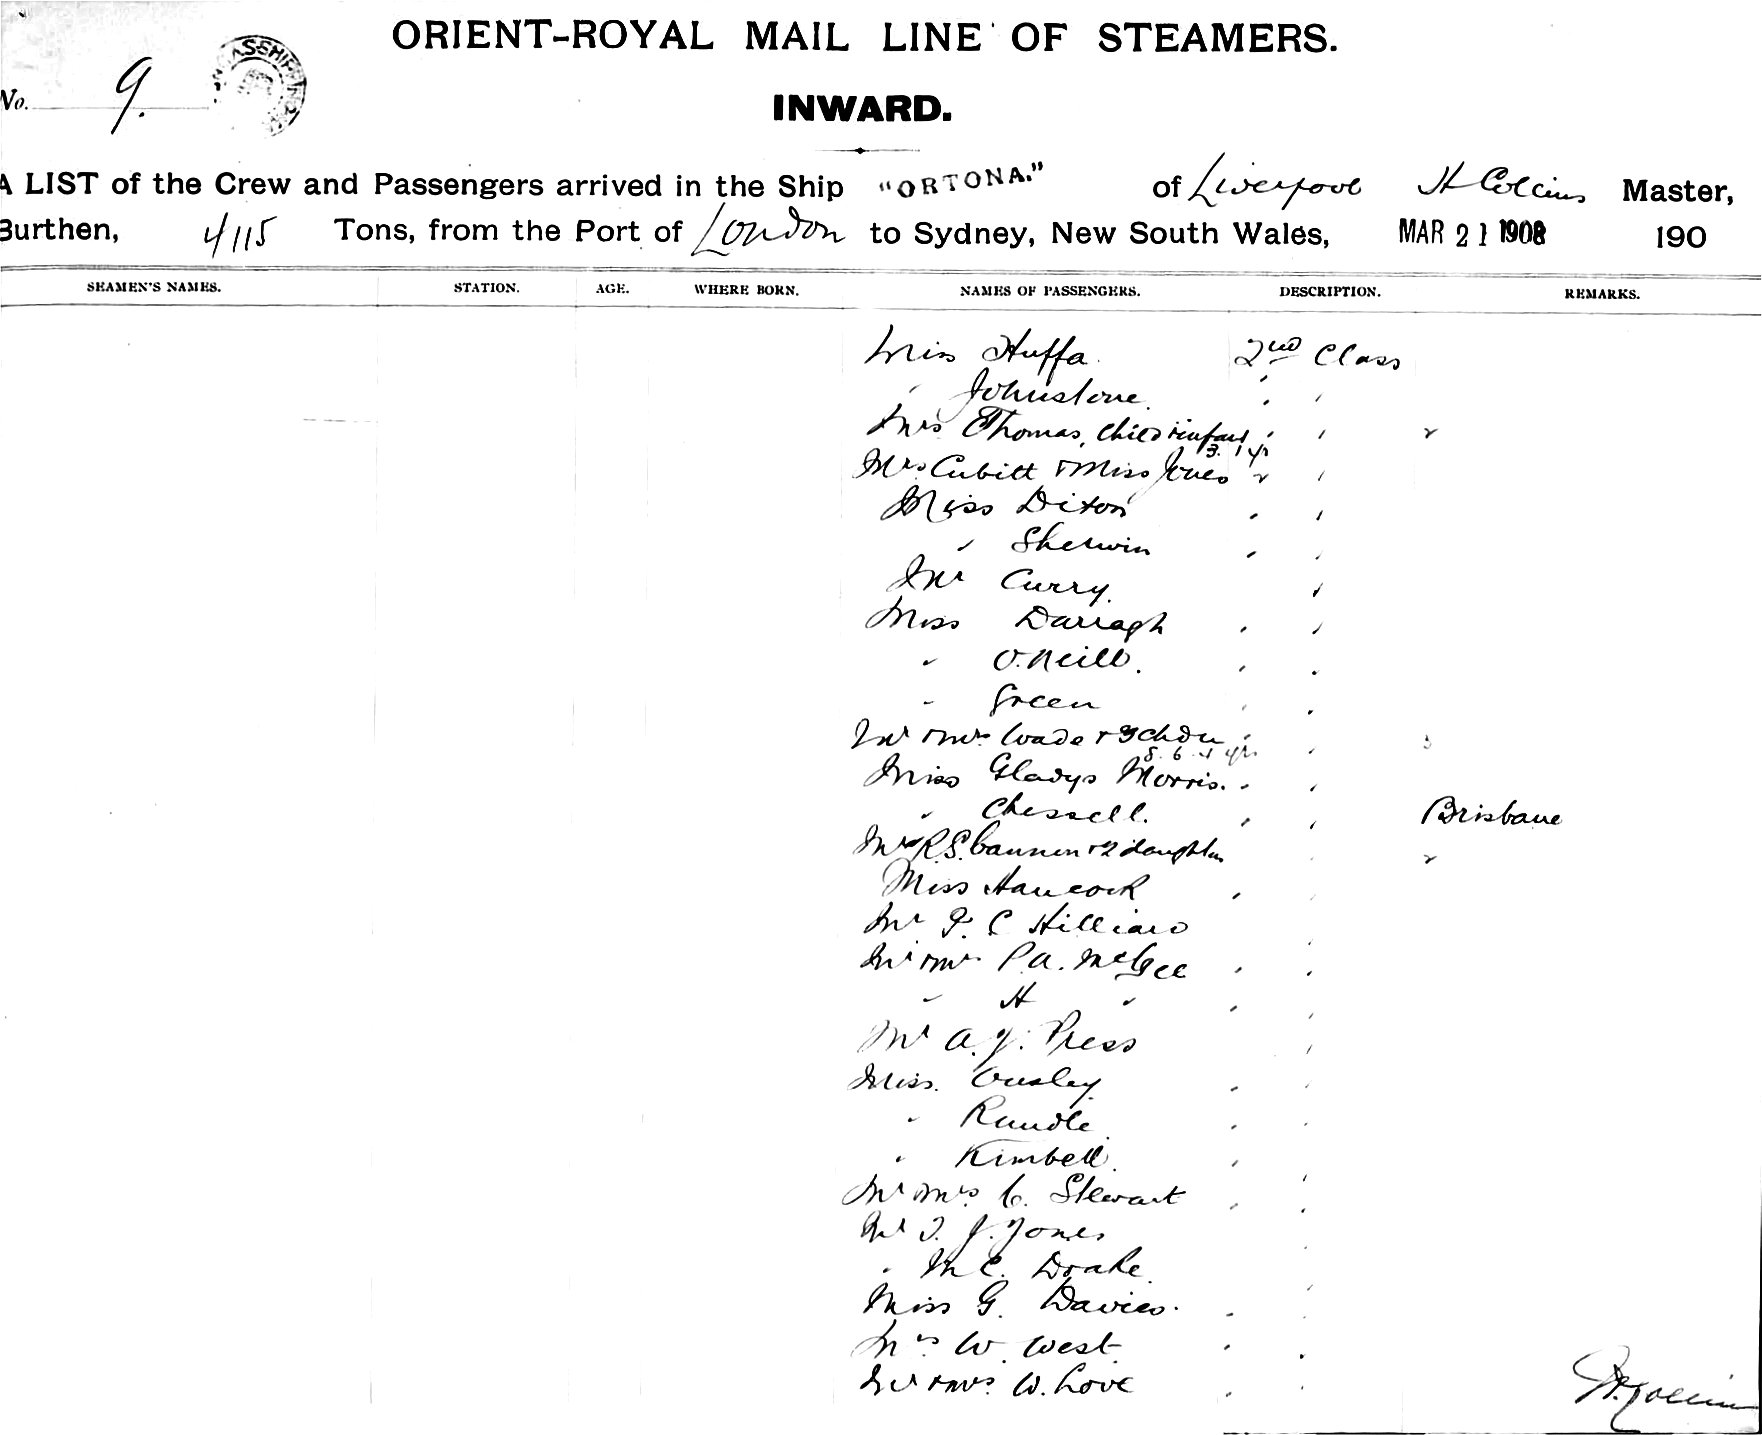 ORIENT-ROYAL MAIL LINE OF STEAMERS.
No. 9.
INWARD.
A LIST of the Crew and Passengers arrived in the Ship "ORTONA." of Liverpool H Collins Master,
Burthen, 4115 Tons, from the Port of London to Sydney, New South Wales, MAR 21 1908 190
SEAMEN'S NAMES. STATION. AGE. WHERE BORN. NAMES OF PASSENGERS. DESCRIPTION. REMARKS.
Miss Huffa. 2nd Class
" Johnstone. " "
Mrs Thomas, child & infant " "
3. 1 yr
Mrs Cubitt & Miss Jones " "
Miss Dixon " "
" Sherwin " "
Mr Curry. "
Miss Darragh " "
" O.Neill. " "
" Green " "
Mr & Mrs Wade & 3 chdn " "
8. 6. 4 yrs
Miss Gladys Morris. " "
" Chessell. " " Brisbane
Mrs R.S. Cannon & 2 daughters "
Miss Hancock " "
Mr F. C Hilliard "
Mr & Mrs P.A. McGee " "
" H " " "
Mr A. J. Press "
Miss. Ousley " "
" Rundle. " "
" Kimbell. " "
Mr & Mrs C. Stewart " "
Mr T. J. Jones "
" M C. Drake. "
Miss G. Davies. " "
Mrs W. West. " "
Mr & Mrs. W. Love " "
H. Collins